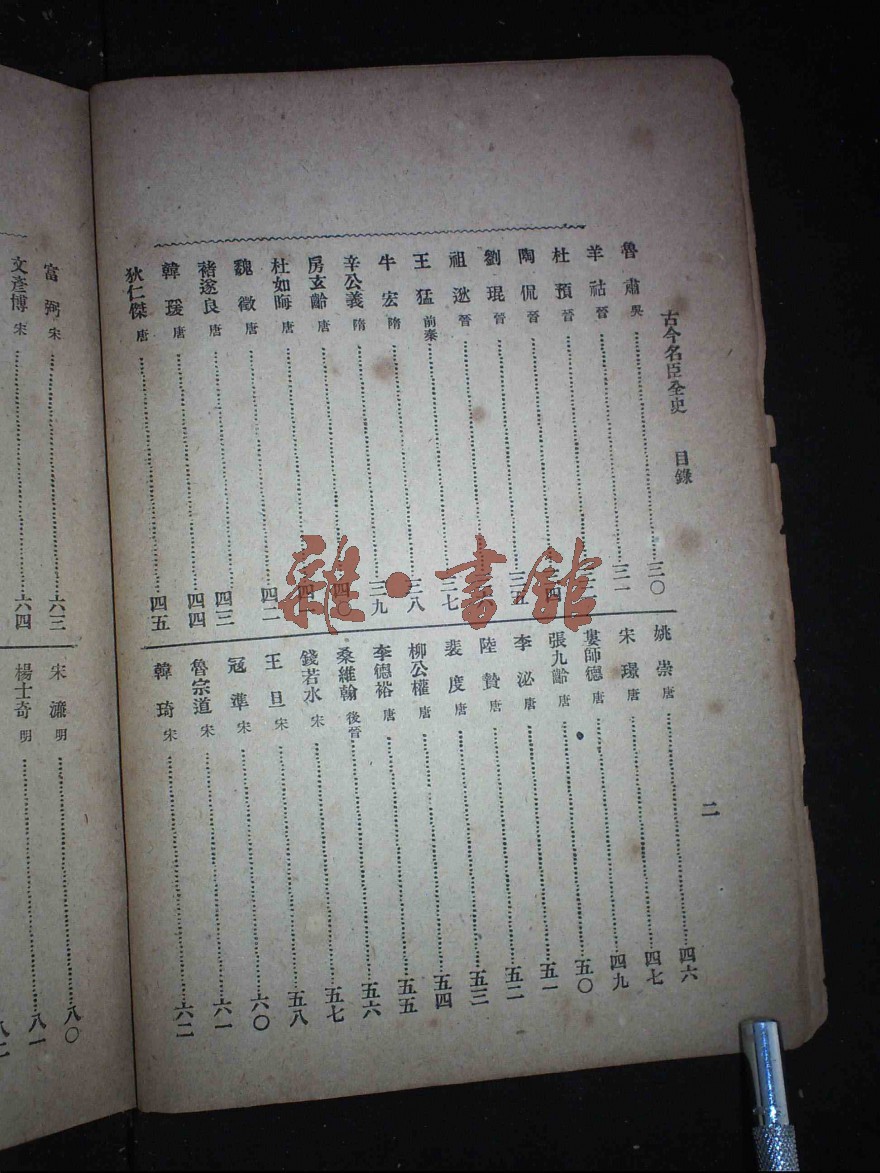 古今名臣全史 目錄 二
魯肅 吳 三〇
羊祜 晉 三一
杜預 晉
陶侃 晉 四
劉琨 晉 三五
祖逖 晉
王猛 前秦 三七
牛宏 隋 三八
辛公義 隋 三九
房玄齡 唐 四〇
杜如晦 唐 四一
魏徵 唐 四二
褚遂良 唐 四三
韓瑗 唐 四四
狄仁傑 唐 四五
姚崇 唐 四六
宋璟 唐 四七
婁師德 唐 四九
張九齡 唐 五〇
李泌 唐 五一
陸贄 唐 五二
裴度 唐 五三
柳公權 唐 五四
李德裕 唐 五五
桑維翰 後晉 五六
錢若水 宋 五七
王旦 宋 五八
寇準 宋 六〇
魯宗道 宋 六一
韓琦 宋 六二
富弼 宋 六三
文彥博 宋 六四
宋濂 明 八〇
楊士奇 明 八一
雜·書館